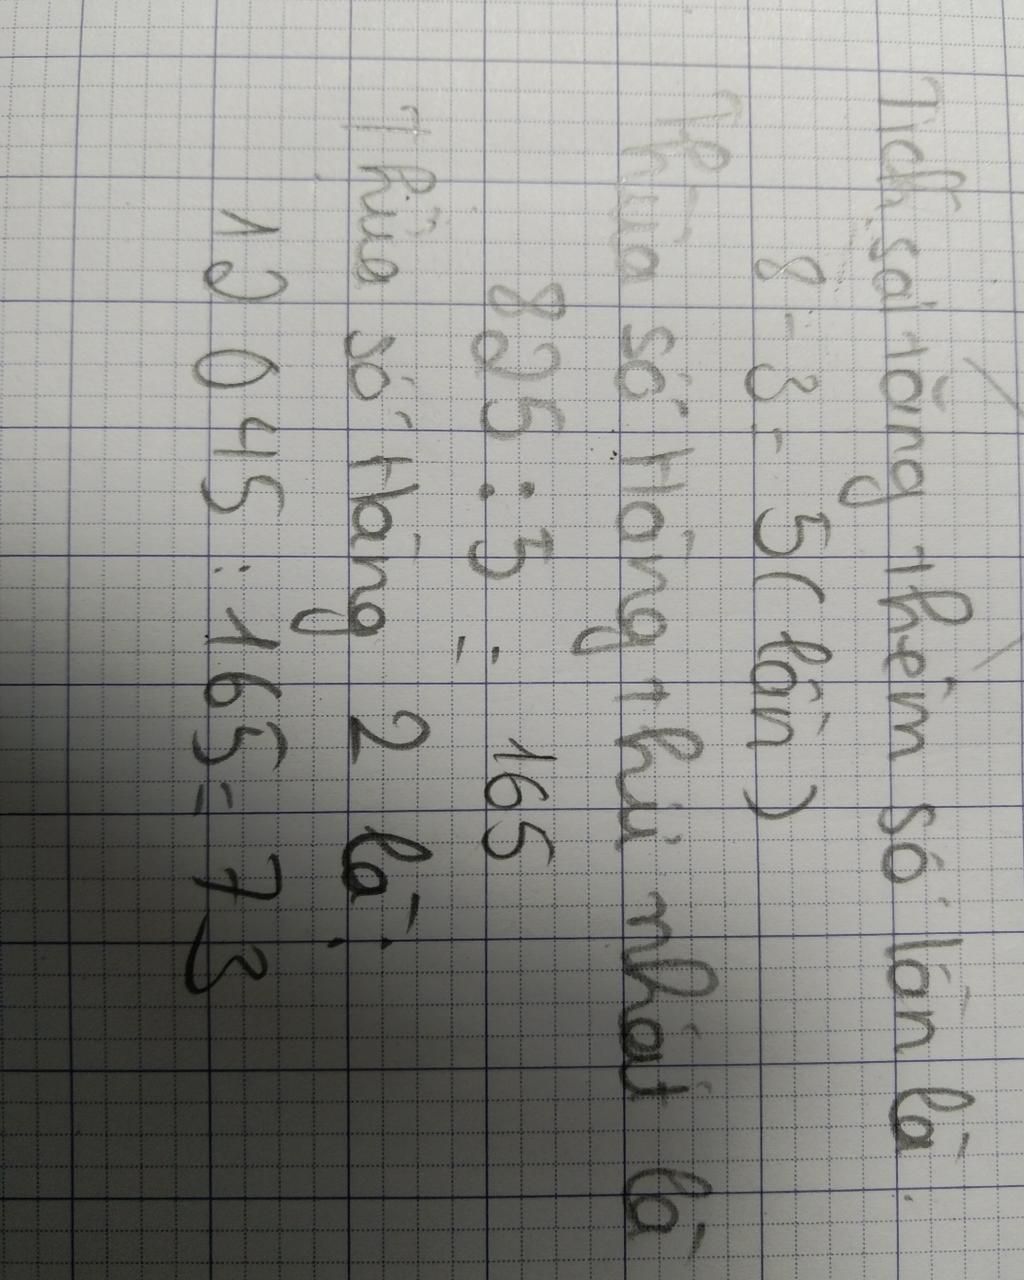 Tích sẽ tăng thêm số lần là:
8 - 3 = 5 (lần)
Thừa số Hàng thứ nhất là
825 : 5 = 165
Thừa số Hàng 2 là:
12 045 : 165 = 73